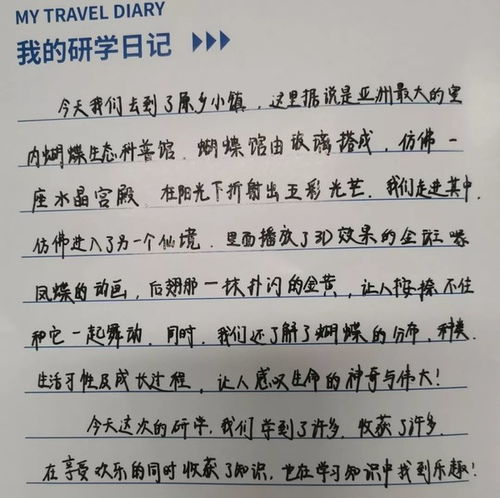 MY TRAVEL DIARY
我的研学日记
今天我们去到了原乡小镇，这里据说是亚洲最大的室
内蝴蝶生态科普馆，蝴蝶馆由玻璃搭成，仿佛一
座水晶宫殿，在阳光下折射出五彩光芒，我们走进其中，
仿佛进入了另一个仙境，里面播放了3D效果的金斑喙
凤蝶的动画，后翅那一抹扑闪的金黄，让人按捺不住
和它一起舞动，同时，我们还了解了蝴蝶的分布、种类、
生活习性及成长过程，让人感叹生命的神奇与伟大！
今天这次的研学，我们学到了许多，收获了许多，
在享受欢乐的同时收获了知识，也在学习知识中找到乐趣！